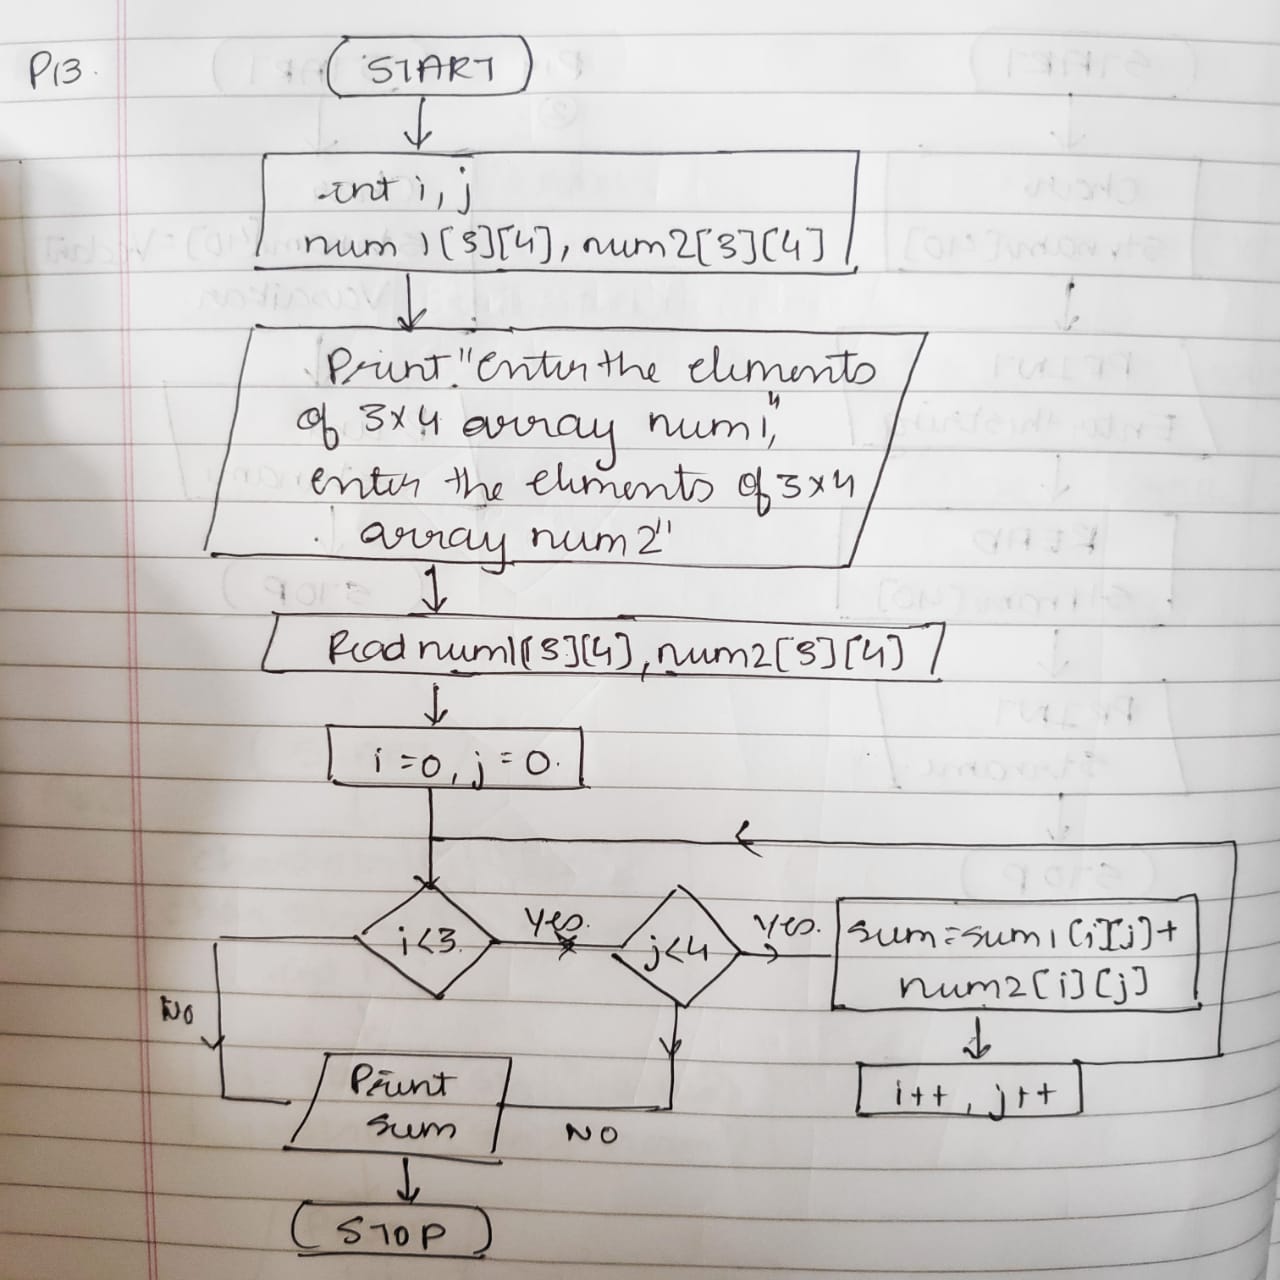 P13.
START
int i, j
num1[3][4], num2[3][4]
Print "enter the elements
of 3x4 array num1,"
enter the elements of 3x4
array num2"
Read num1[3][4], num2[3][4]
i=0, j=0.
i<3.
Yes.
j<4
Yes.
sum=sum1[i][j]+
num2[i][j]
NO
Print
sum
NO
i++, j++
STOP